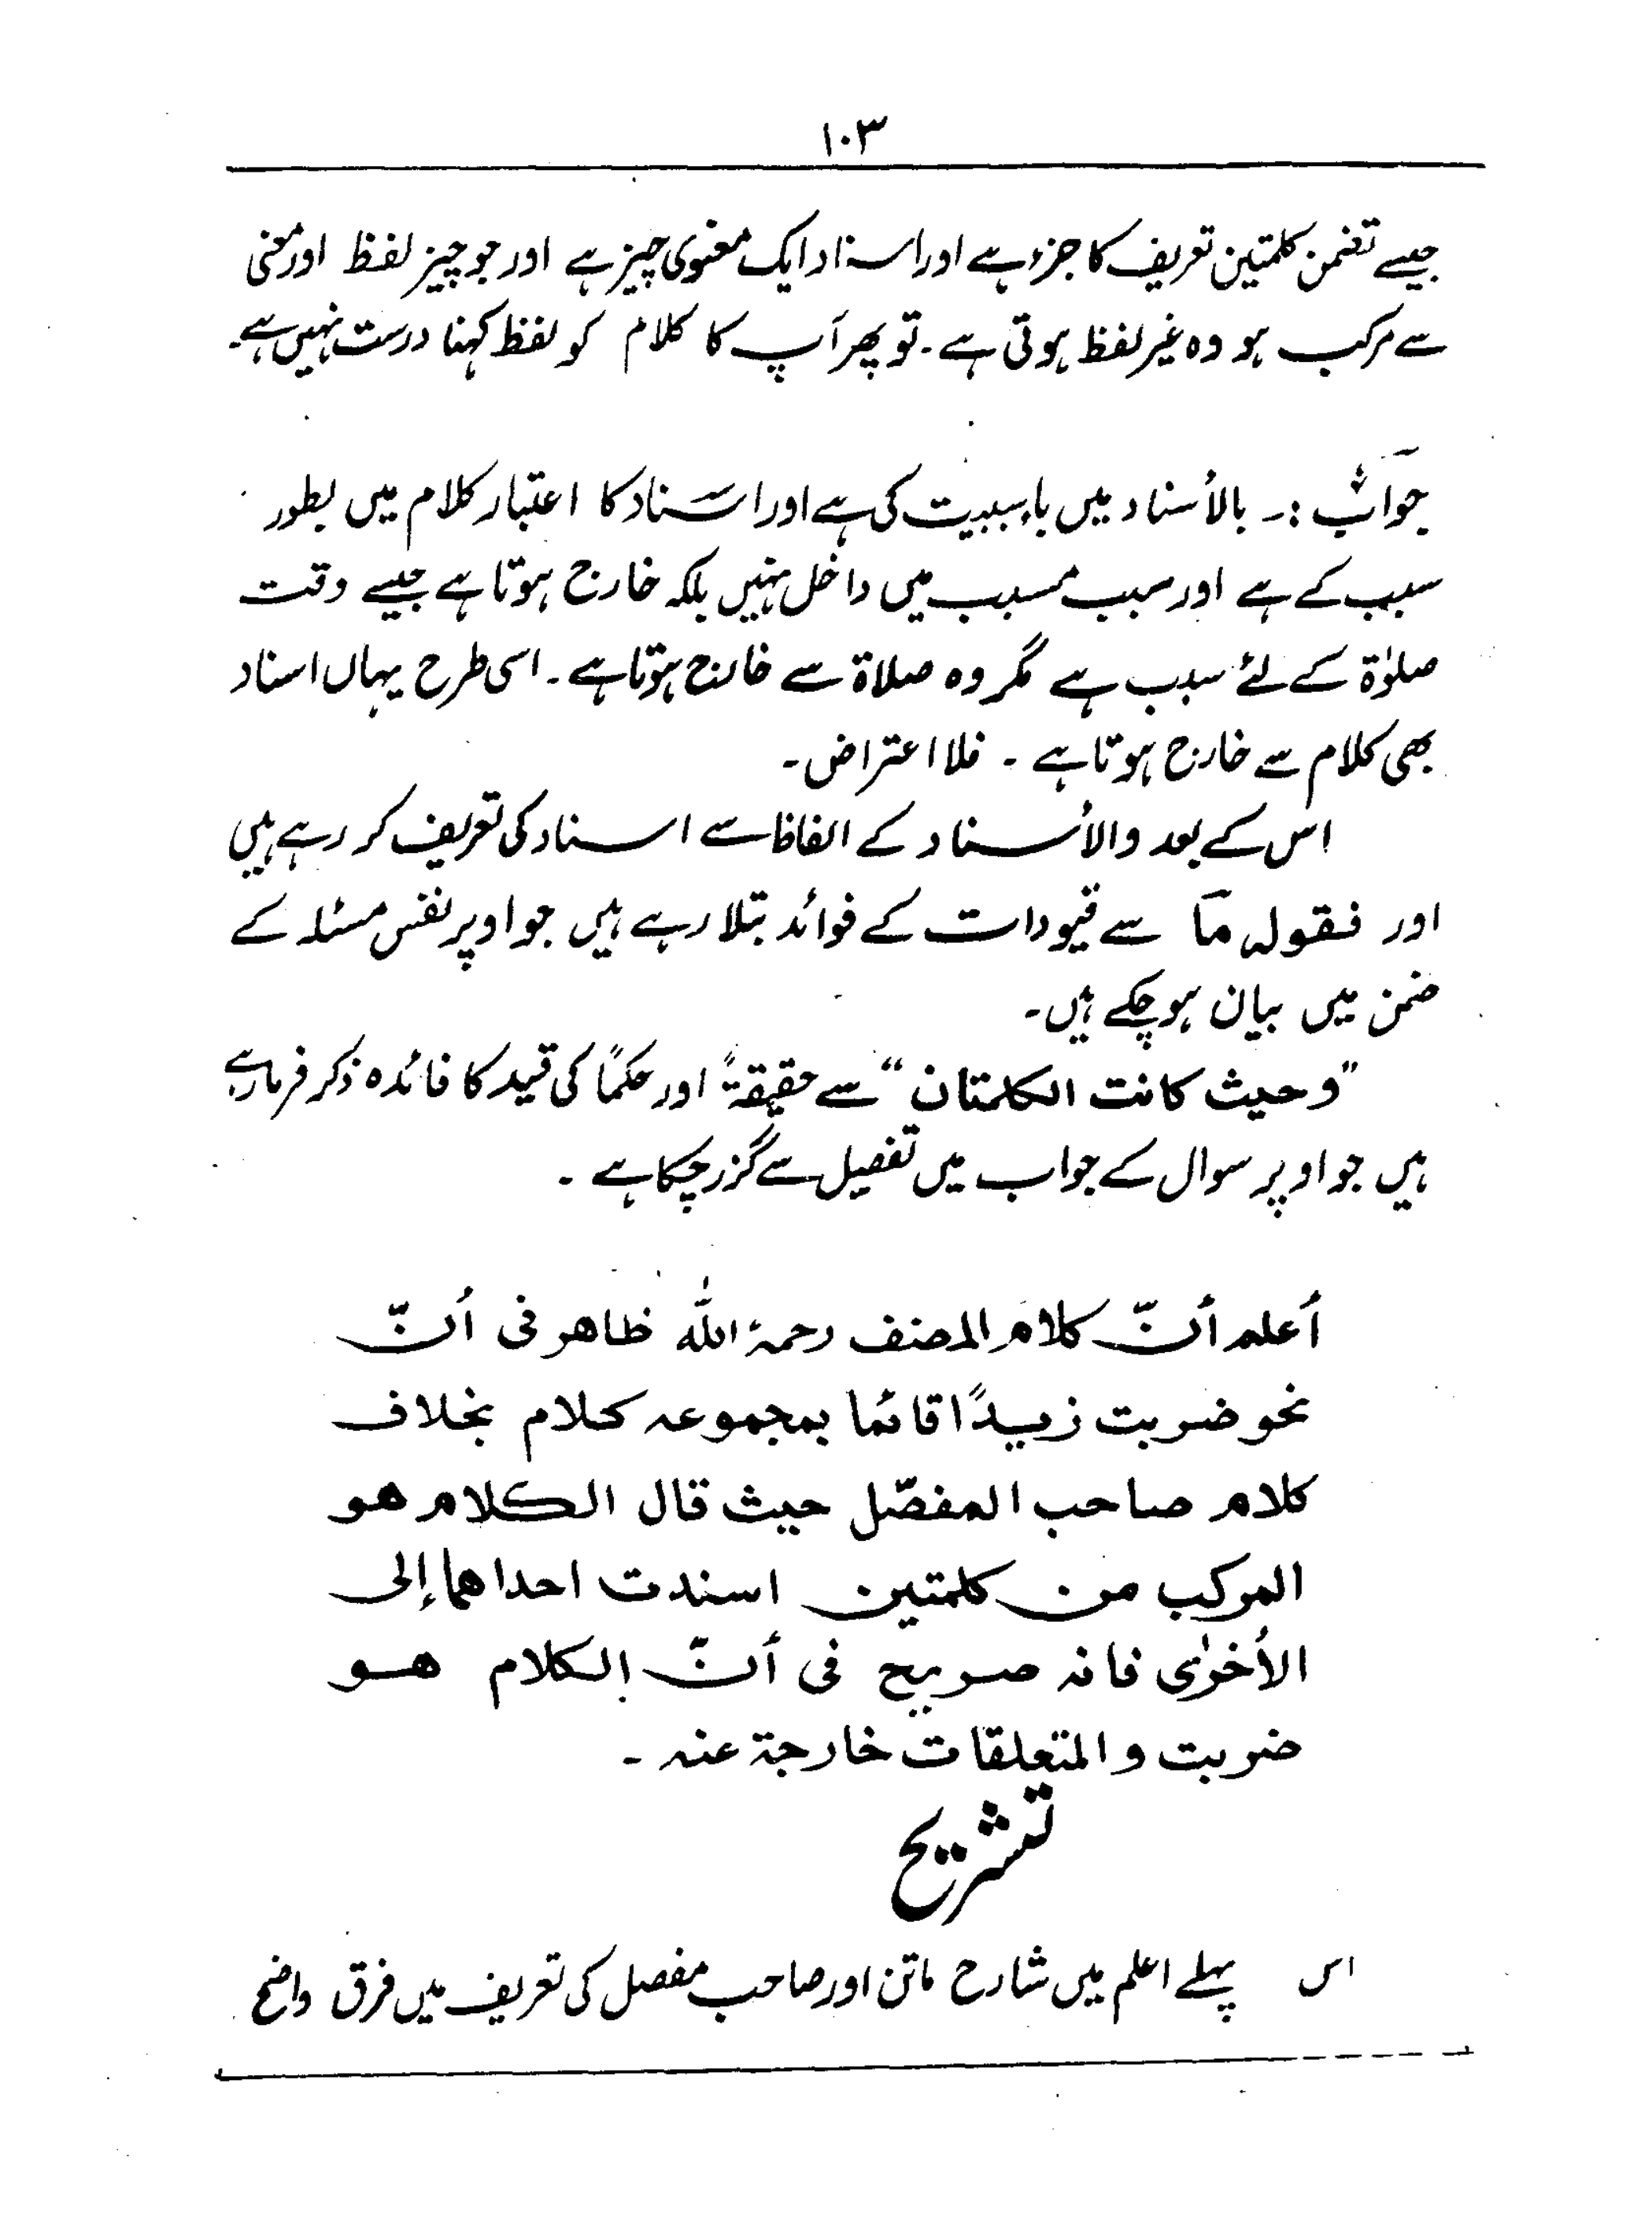 ۱۰۳
جیسے تضمن کلمتین تعریف کا جزء ہے اور اسناد ایک معنوی چیز ہے اور جو چیز لفظ اور معنی
سے مرکب ہو وہ غیر لفظ ہوتی ہے۔ تو پھر آپ کا کلام کو لفظ کہنا درست نہیں ہے۔
جواب :۔ بالأسناد میں باء سببیت کی ہے اور اسناد کا اعتبار کلام میں بطور
سبب کے ہے اور سبب مسبب میں داخل نہیں بلکہ خارج ہوتا ہے جیسے وقت
صلوٰۃ کے لئے سبب ہے مگر وہ صلاۃ سے خارج ہوتا ہے۔ اسی طرح یہاں اسناد
بھی کلام سے خارج ہوتا ہے ۔ فلا اعتراض۔
اس کے بعد والأسناد کے الفاظ سے اسناد کی تعریف کر رہے ہیں
اور فقولہ مَا سے قیودات کے فوائد بتلا رہے ہیں جو اوپر نفس مسئلہ کے
ضمن میں بیان ہو چکے ہیں۔
”وحیث کانت الکلمتان“ سے حقیقۃً اور حکماً کی قید کا فائدہ ذکر فرما رہے
ہیں جو اوپر سوال کے جواب میں تفصیل سے گزر چکا ہے ۔
أعلم أنّ کلام المصنف رحمۃ اللہ ظاهر فی أنّ
نحو ضربت زیدًا قائما بمجموعہ کلام بخلاف
کلام صاحب المفصّل حیث قال الکلام هو
المرکب من کلمتین اسندت احداهما إلی
الأخرٰی فانہ صریح فی أنّ الکلام هو
ضربت و المتعلقات خارجۃ عنہ ۔
تشریح
اس پہلے اعلم میں شارح ماتن اور صاحب مفصل کی تعریف میں فرق واضح